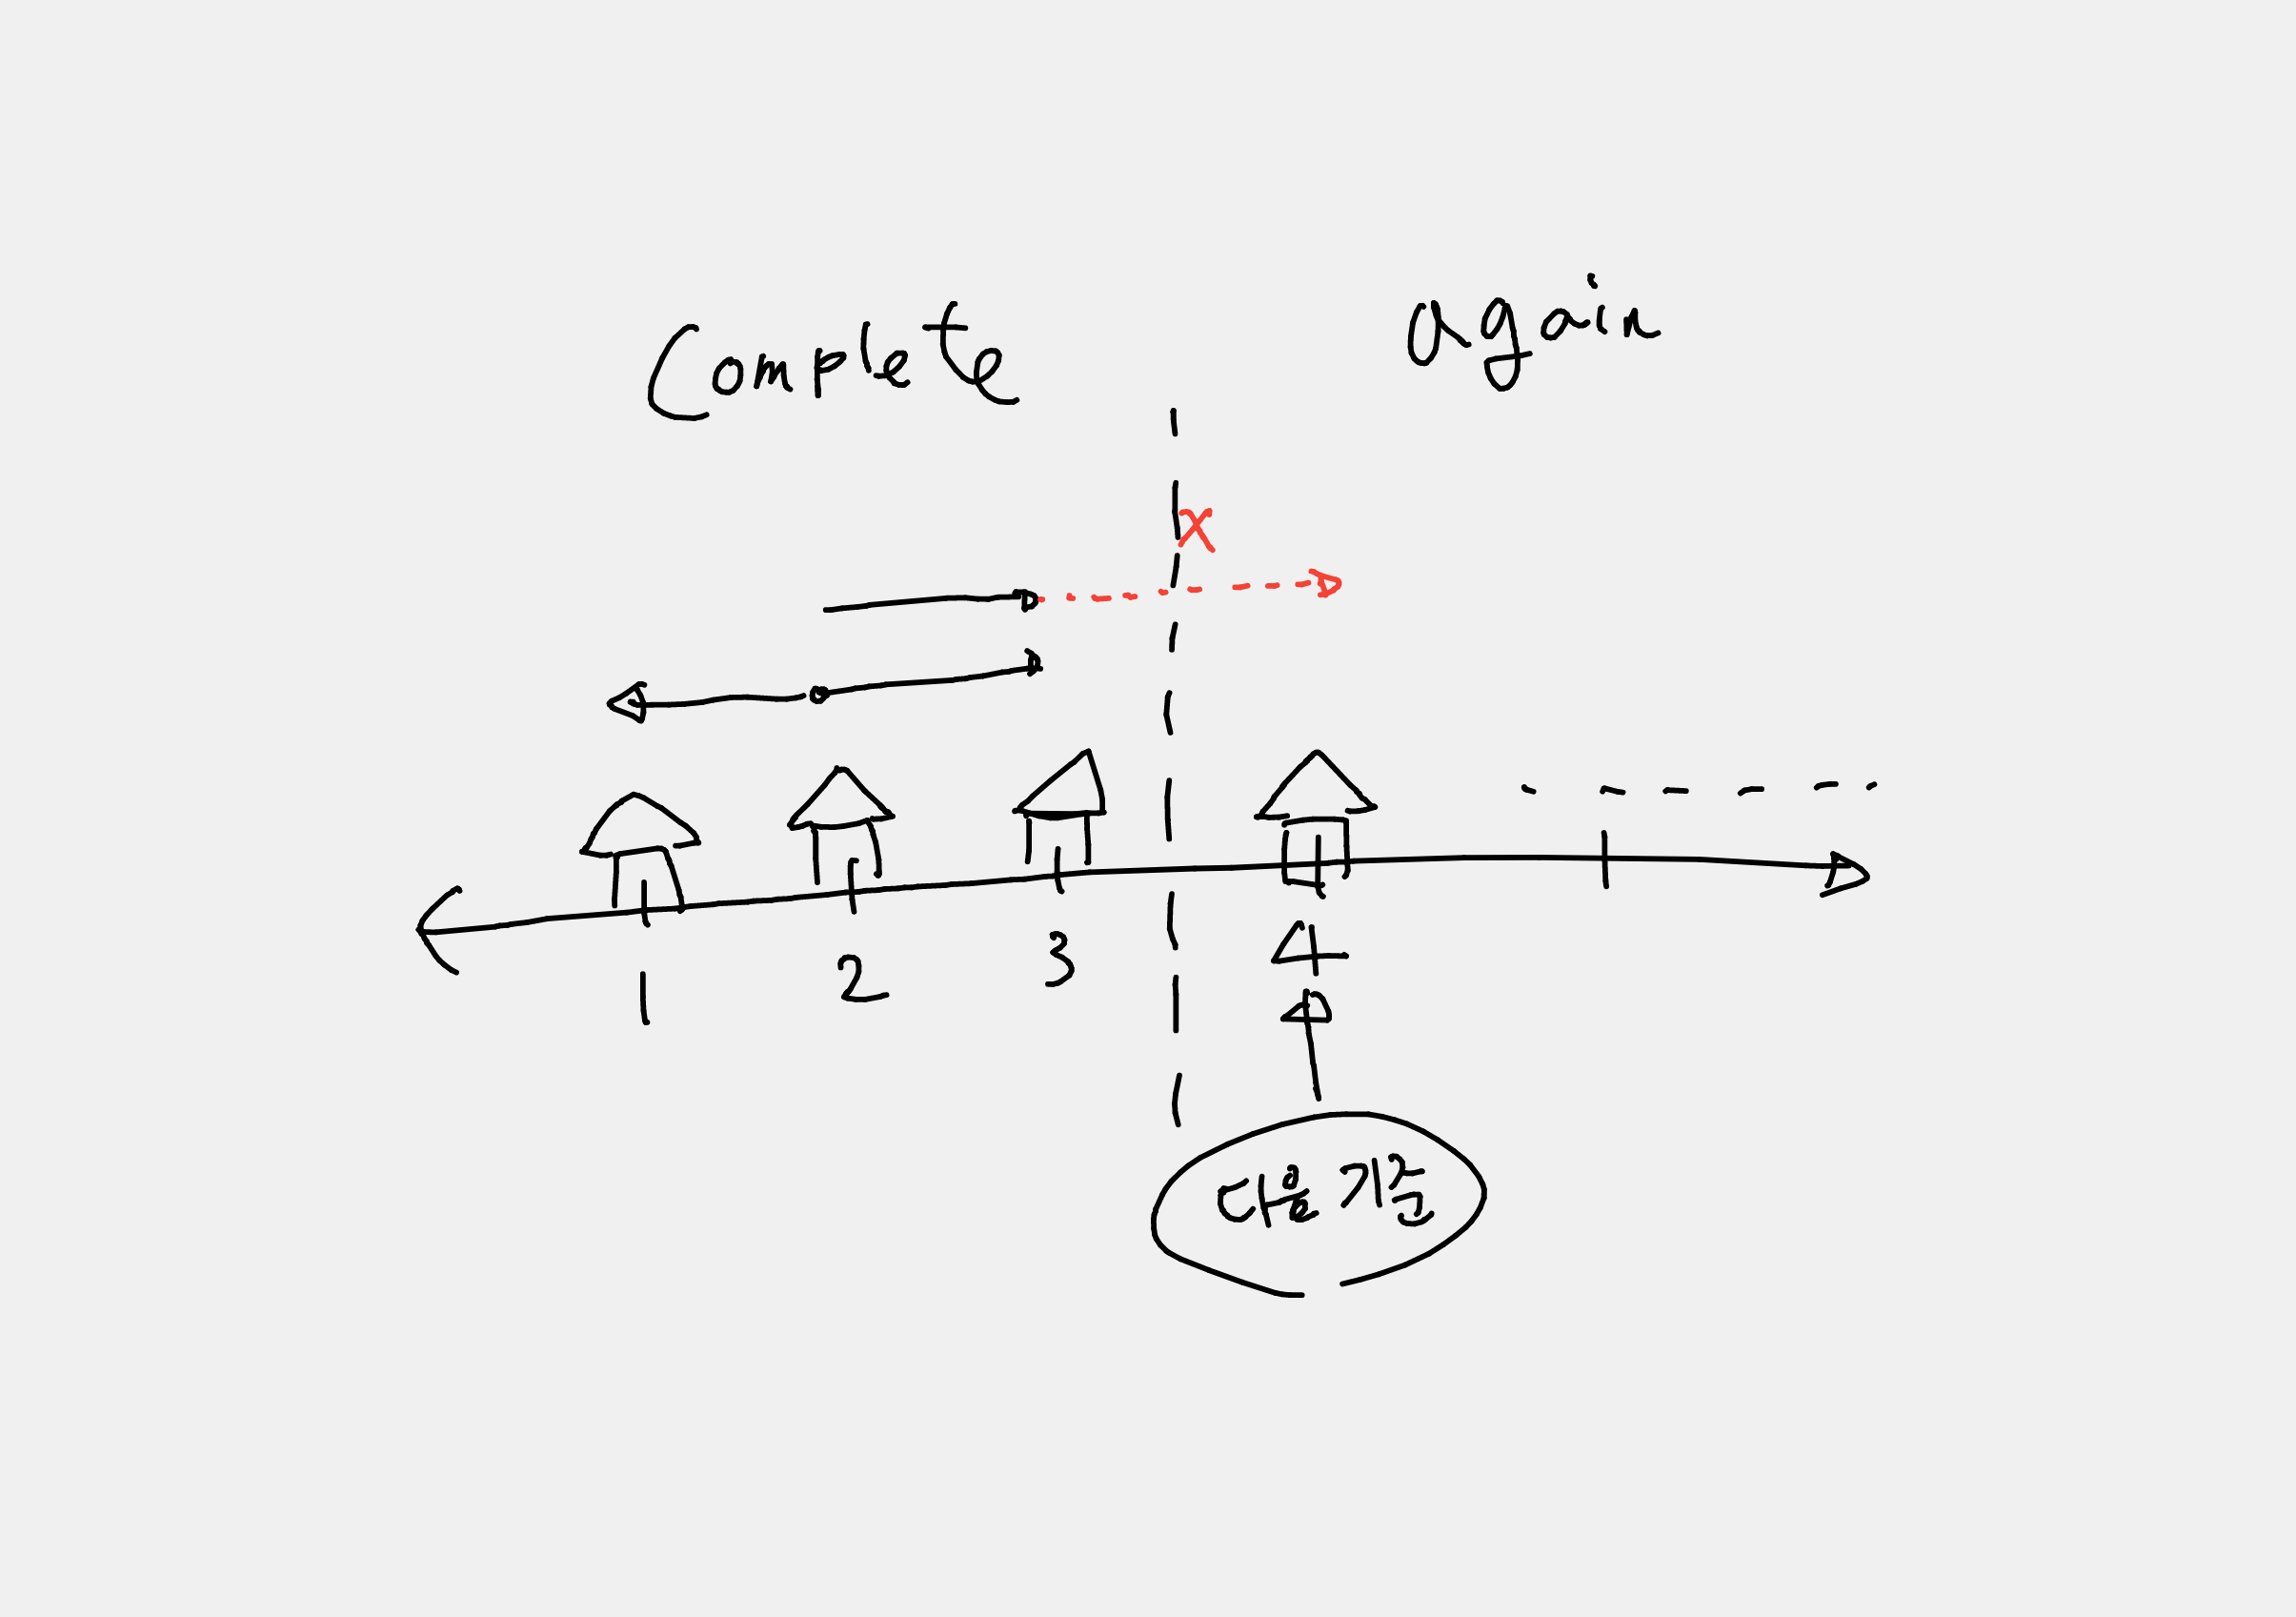 Complete
again
x
1 2 3 4
다음